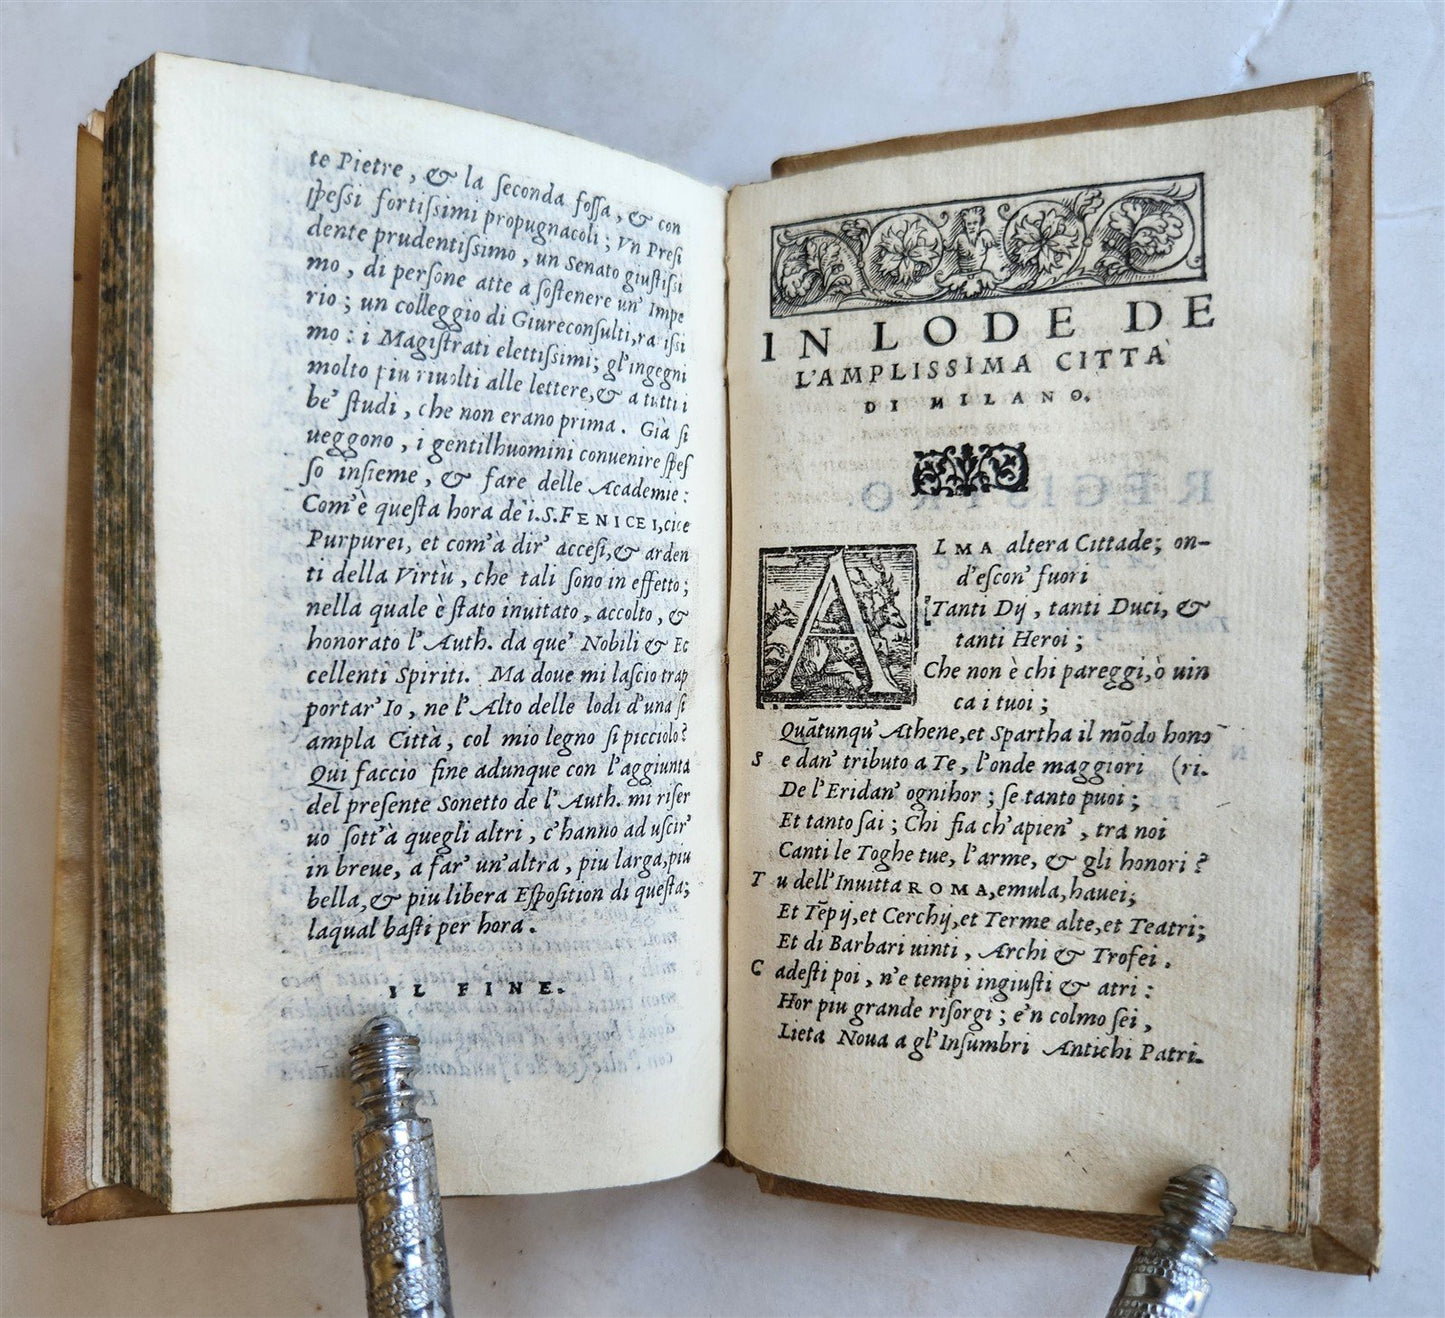 te Pietre, & la ſeconda foſſa, & con
ſpeſsi fortiſsimi propugnacoli; Vn Preſi
dente prudentiſsimo, un Senato giuſtiſsi
mo, di perſone atte a ſoſtenere un' Impe
rio; un colleggio di Giureconſulti,ra iſsi
mo: i Magiſtrati elettiſsimi; gl'ingegni
molto piu riuolti alle lettere,& a tutti i
be' ſtudi, che non erano prima. Già ſi
ueggono, i gentilhuomini conuenire ſpeſ
ſo inſieme, & fare delle Academie:
Com'è queſta hora de i.S.FENICEI,cioe
Purpurei, et com'à dir' acceſi,& arden
ti della Virtù, che tali ſono in effetto;
nella quale è ſtato inuitato, accolto, &
honorato l'Auth. da que' Nobili & Ec
cellenti Spiriti. Ma doue mi laſcio trap
portar' Io, ne l'Alto delle lodi d'una ſi
ampla Città, col mio legno ſi picciolo?
Qui faccio fine adunque con l'aggiunta
del preſente Sonetto de l'Auth. mi riſer
uo ſott'à quegli altri, c'hanno ad uſcir'
in breue, a far' un'altra, piu larga,piu
bella,& piu libera Eſpoſition di queſta;
laqual baſti per hora.
IL FINE.
IN LODE DE
L'AMPLISSIMA CITTA'
DI MILANO.
ALMA altera Cittade; on-
d'eſcon' fuori
Tanti Dij, tanti Duci, &
tanti Heroi;
Che non è chi pareggi,ò uin
ca i tuoi;
Quātunqu' Athene,et Spartha il mōdo hono
Se dan' tributo a Te, l'onde maggiori (ri.
De l'Eridan' ognihor; ſe tanto puoi;
Et tanto ſai; Chi fia ch'apien', tra noi
Canti le Toghe tue, l'arme, & gli honori?
Tu dell'Inuitta ROMA,emula,hauei;
Et Tēpij,et Cerchij,et Terme alte,et Teatri;
Et di Barbari uinti, Archi & Trofei.
Cadeſti poi, n'e tempi ingiuſti & atri:
Hor piu grande riſorgi; e'n colmo ſei,
Lieta Noua a gl'Inſumbri Antichi Patri.